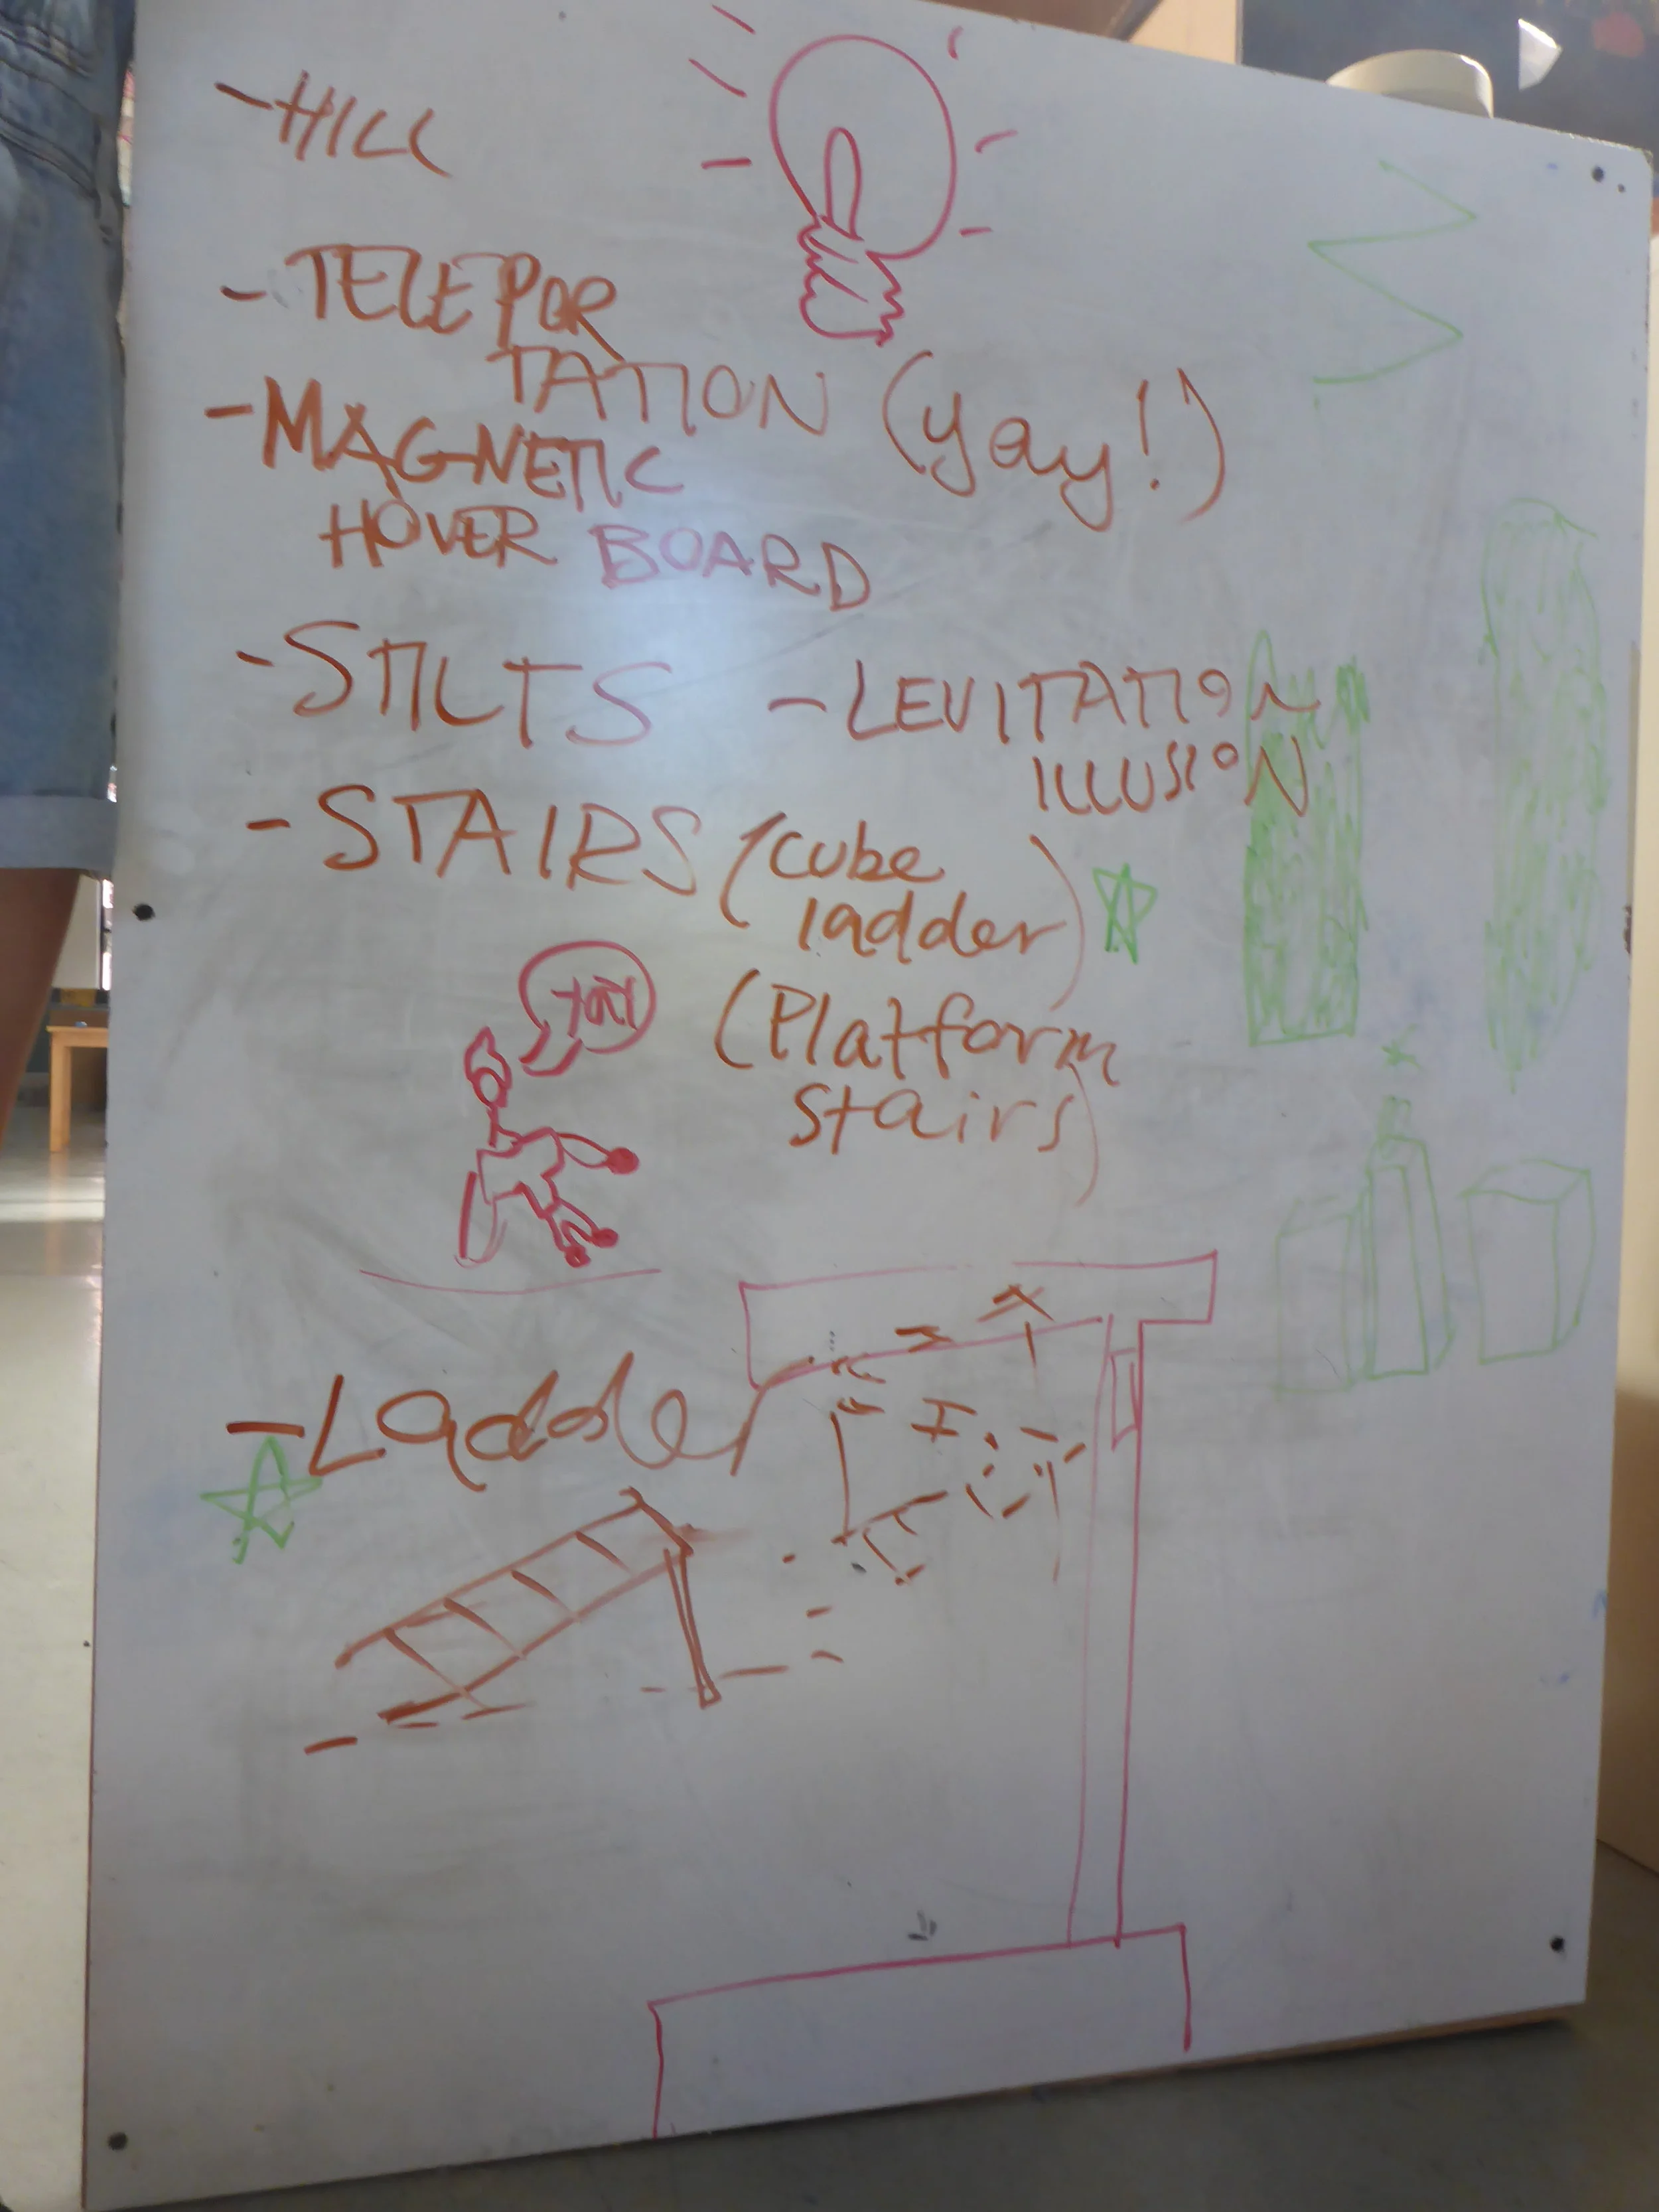 - HILL
- TELEPOR
TATION (yay!)
- MAGNETIC
HOVER BOARD
- STILTS - LEVITATION
ILLUSION
- STAIRS (cube
ladder)
(Platform
stairs)
- Ladder